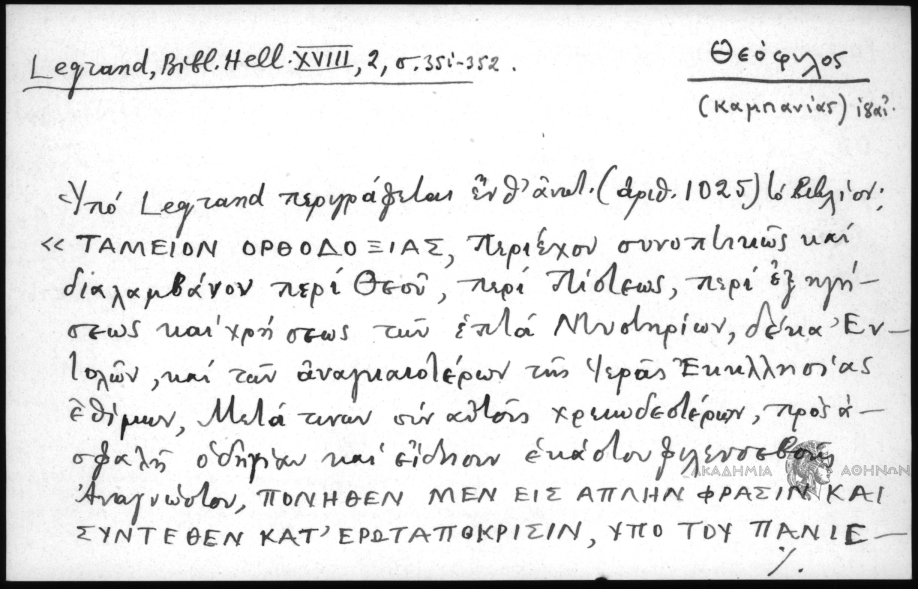 Legrand, Bibl. Hell. XVIII, 2, σ. 351-352.
Θεόφιλος
(Καμπανίας)
Ὑπό Legrand περιγράφεται ἐν θ' ἀνωτ. (ἀριθ. 1025) τό Βιβλίον:
« ΤΑΜΕΙΟΝ ΟΡΘΟΔΟΞΙΑΣ, Περιέχον συνοπτικῶς καί
διαλαμβάνον περί Θεοῦ, περί Πίστεως, περί ἐξηγή-
σεως καί χρήσεως τῶν ἑπτά Μυστηρίων, δέκα Ἐν-
τολῶν, καί τῶν ἀναγκαιοτέρων τῆς Ἱερᾶς Ἐκκλησίας
ἐθίμων, Μετά τινων σύν αὐτοῖς χρειωδεστέρων, πρός ἀ-
σφαλῆ ὁδηγίαν καί εἴδησιν ἑκάστου φιλευσεβοῦς
ΑΚΑΔΗΜΙΑ ΑΘΗΝΩΝ
Ἀναγνώστου, ΠΟΝΗΘΕΝ ΜΕΝ ΕΙΣ ΑΠΛΗΝ ΦΡΑΣΙΝ ΚΑΙ
ΣΥΝΤΕΘΕΝ ΚΑΤ' ΕΡΩΤΑΠΟΚΡΙΣΙΝ, ΥΠΟ ΤΟΥ ΠΑΝΙΕ-
./.